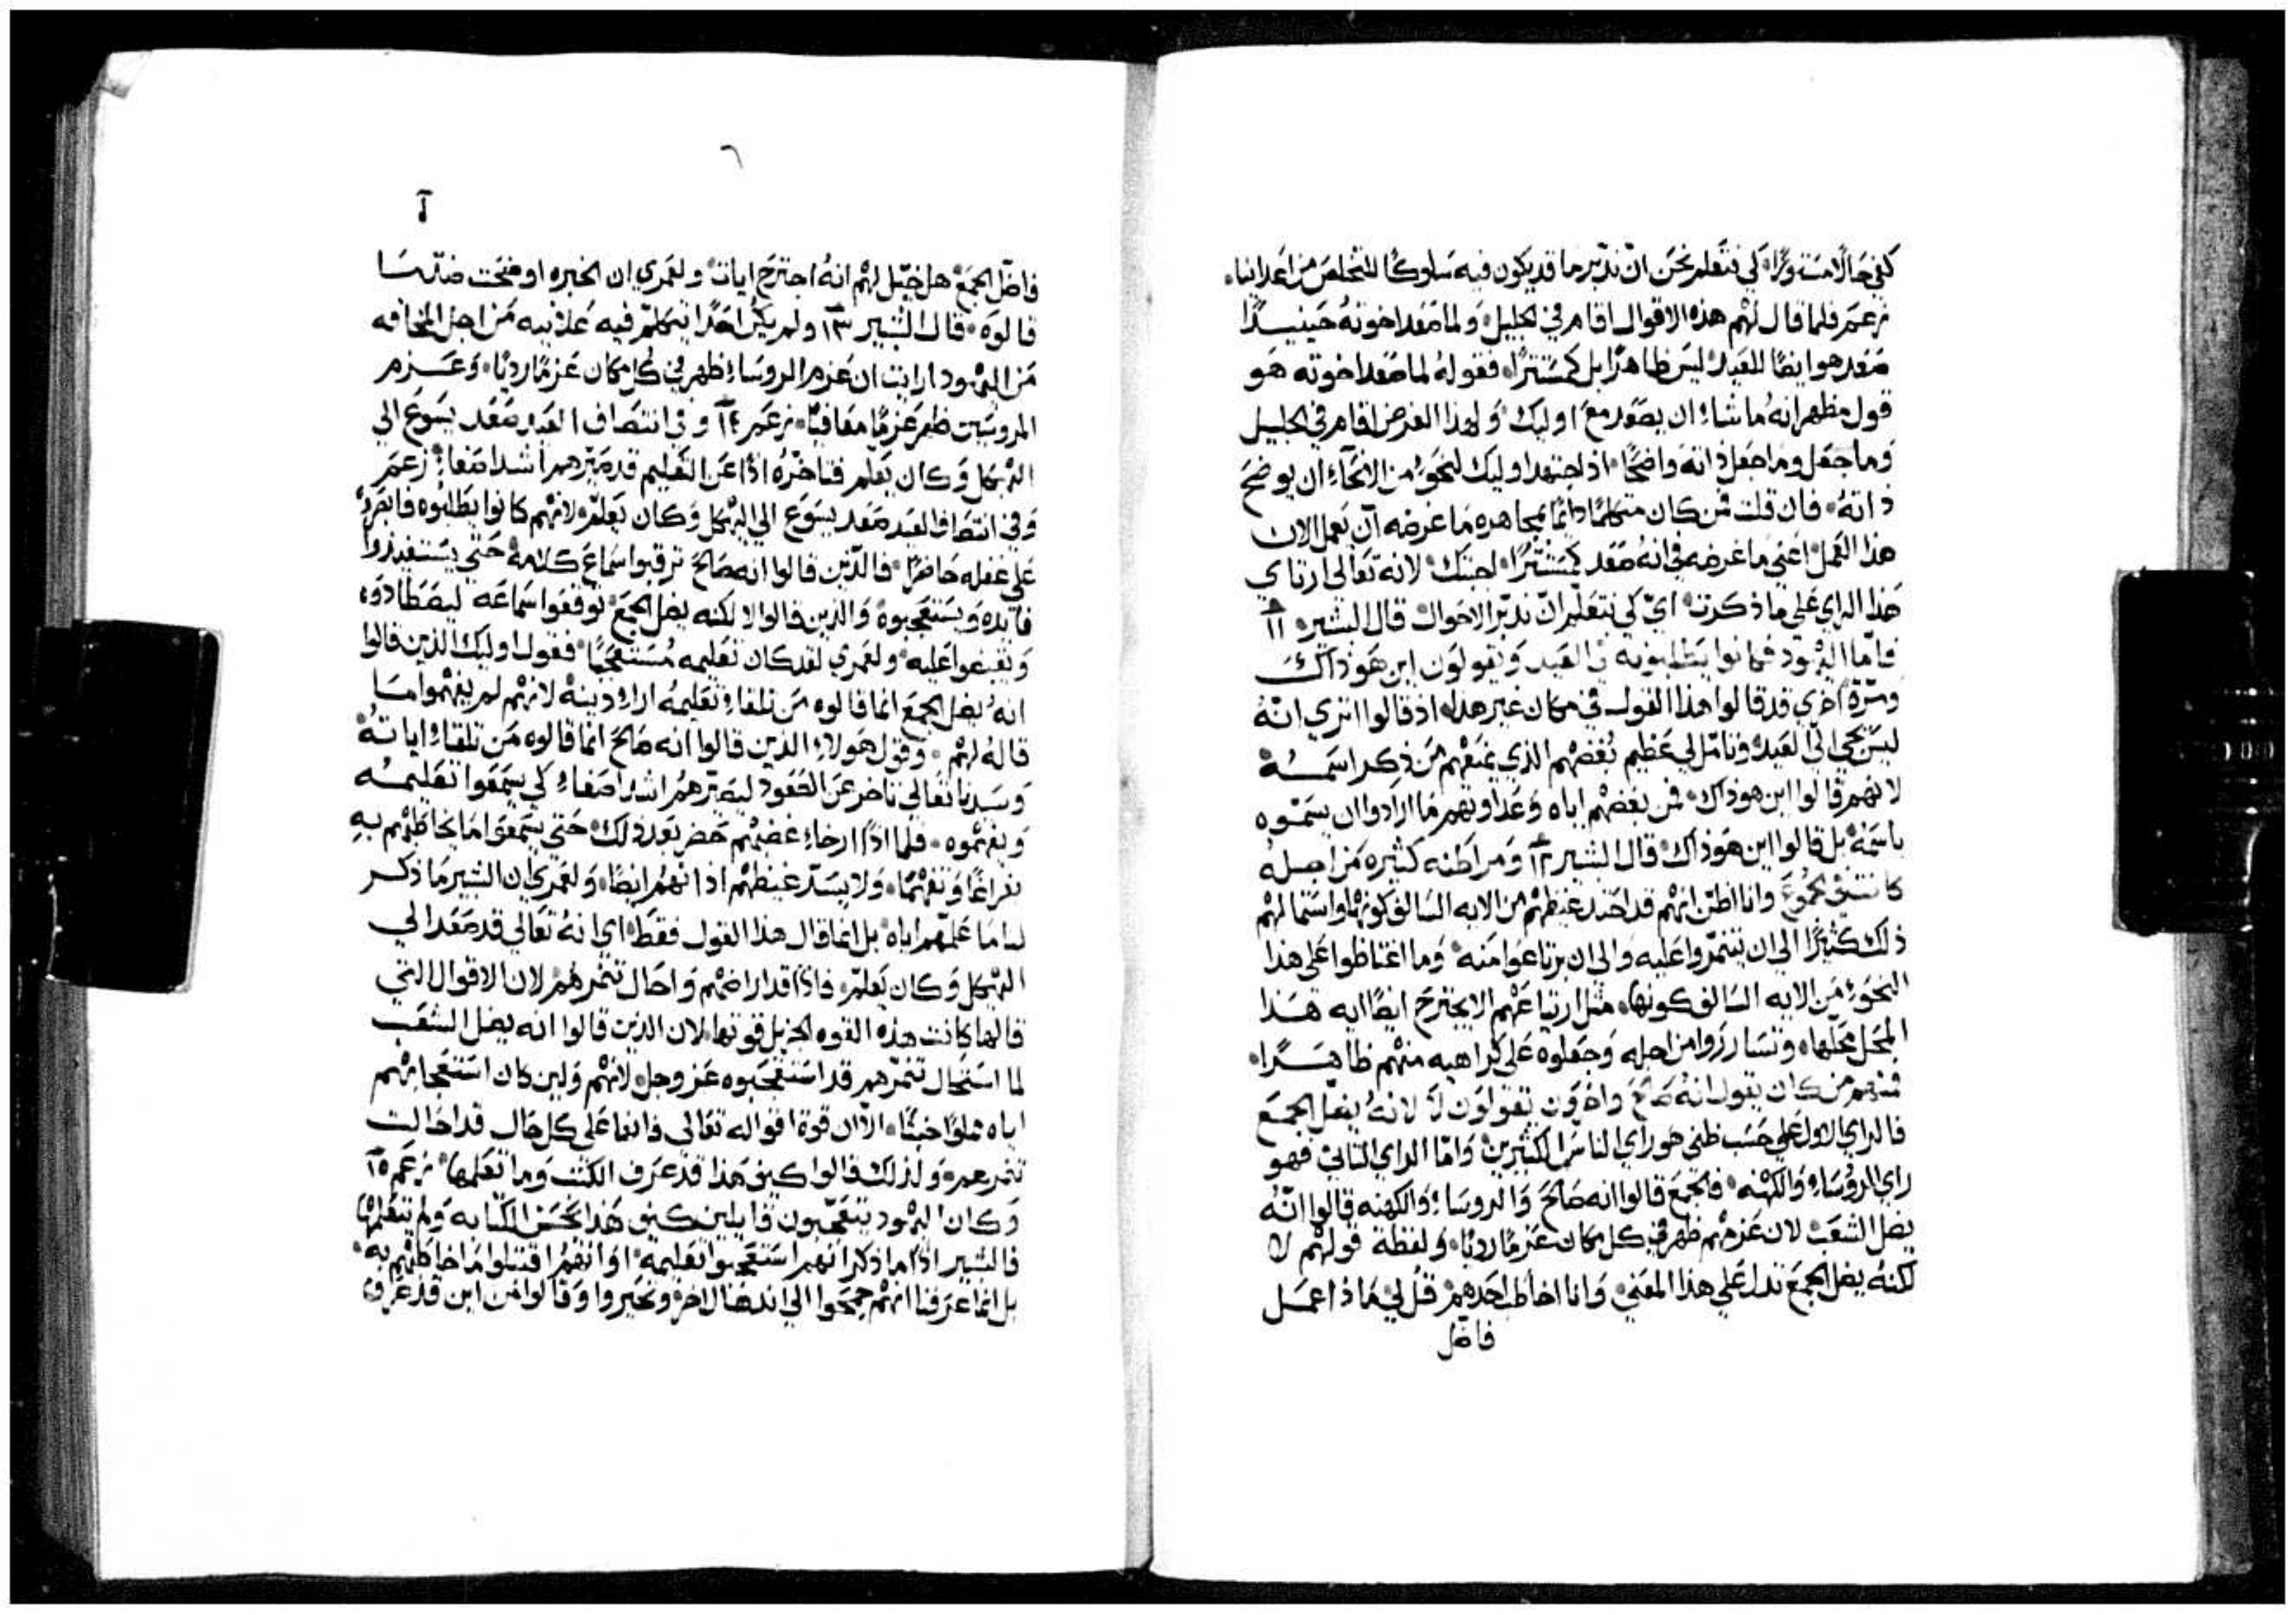 كفي حالا مستورا، لي نتعلم نحن ان ندبر ما قد يكون فيه سلوكا للتخلص من اعداينا،
زعمر فلما قال لهم هذه الاقوال اقام في الجليل، ولما صعد اخوته حينيذا
صعد هو ايضا للعيد ليس ظاهرا بل كمستترا، فقوله لما صعد اخوته هو
قول مظهر انه ما شاء ان يصعد مع اوليك، ولهذا الغرض اقام في الجليل
وما جعل وما جعل ذاته واضحا، اذ اجتهد اوليك لنحو من الانحاء ان يوضح
ذاته، فان قلت فمن كان متكلما دائما بمجاهره ما غرضه ان يعمل الان
هذا العمل، اعني ما غرضه في انه صعد كمستترا، اجبتك، لانه تعالى ارتاي
هذا الراي على ما ذكرت، اي كي نتعلم ان ندبر الاحوال، قال البشير، ١١
فاما اليهود فكانوا يطلبونه في العيد ويقولون اين هو ذاك
ومرة اخري قد قالوا هذا القول في مكان غير هذا، اذ قالوا اتري انه
ليس يجي الي العيد، وتامل لي عظيم بغضهم الذي يمنعهم من ذكر اسمه
لانهم قالوا اين هو ذاك، فمن بغضهم اياه وعداوتهم ما ارادوا ان يسموه
باسمه بل قالوا اين هو ذاك، قال البشير ١٢ ومراطنه كثيره من اجله
كانت في الجموع وانا اظن انهم قد احتد غيظهم من الايه السالف كونها واستمالهم
ذلك كثيرا الي ان يتنمروا عليه والي ان يرتاعوا منه، وما اغتاظوا على هذا
النحو من الايه السالف كونها، مثل ارتياعهم الا يجترح ايضا ايه هذا
المحل محلها، وتسارروا من اجله وجعلوه على كراهيه منهم ظاهرا،
فمنهم من كان يقول انه صالح واخرون يقولون لا لانه يضل الجمع
فالراي الاول على حسب ظني هو راي الناس الكثيرين، واما الراي الثاني فهو
راي الروساء والكهنه، فالجمع قالوا انه صالح والروساء والكهنه قالوا انه
يضل الشعب، لان عزمهم ظهر في كل مكان عزما رديا، ولفظة قولهم لا
لكنه يضل الجمع تدل على هذا المعني، وانا اخاطب احدهم، قل لي ماذا عمل
فاضل
٦
آ
فاضل الجمع، هل خيل لهم انه اجترح ايات، ولعمري ان الخبره اوضحت ضد ما
قالوه، قال البشير ١٣ ولم يكن احدا يتكلم فيه علانيه من اجل المخافه
من اليهود، ارايت ان عزم الروساء ظهر في كل مكان عزما رديا، وعزم
المروسين ظهر عزما معافيا، زعمر ١٤ وفي انتصاف العيد صعد يسوع الي
الهيكل وكان يعلم فتاخره اذا عن التعليم قد صيرهم اشد اصغاء، زعمر
وفي انتصاف العيد صعد يسوع الي الهيكل وكان يعلم، لانهم كانوا يطلبوه فابصروه
علي غفله حاضرا، فالذين قالوا انه صالح ترقبوا سماع كلامه حتي يستفيدوا
فايده ويستعجبوه، والذين قالوا لا لكنه يضل الجمع توقعوا سماعه ليصطادوه،
ويقبضوا عليه، ولعمري لقد كان تعليمه مستعجبا، فقول اوليك الذين قالوا
انه يضل الجمع انما قالوه من تلقاء تعليمه اراء دينه، لانهم لم يفهموا ما
قاله لهم، وقول هولاء الذين قالوا انه صالح انما قالوه من تلقاء اياته
وسيدنا تعالي تاخر عن الصعود ليصيرهم اشد اصغاء، كي يسمعوا تعليمه
ويفهموه، فلما اذا ارخاء غضبهم حضر بعد ذلك، حتي يسمعوا ما يخاطبهم به
تفراغا وتفهما، ولا يسد غيظهم اذانهم ايضا، ولعمري ان البشير ما ذكر
لنا ما علمهم اياه، بل انما قال هذا القول فقط، اي انه تعالي قد صعد الي
الهيكل وكان يعلم، فاذا قد ارضاهم واحال تنمرهم، لان الاقوال التي
قالها كانت هذه القوه الجزيل قوتها، لان الذين قالوا انه يضل الشعب
لما استحال تنمرهم قد استعجبوه عز وجل، لانهم ولين كان استعجابهم
اياه مملوا خبثا، الا ان قوة اقواله تعالي فانها علي كل حال قد احالت
تنمرهم، ولذلك قالوا كيف هذا قد عرف الكتب وما تعلمها، زعمر ١٥
وكان اليهود يتعجبون قايلين كيف هذا يحسن الكتابه ولم يتعلمها
فالبشير اذا ما ذكر انهم استعجبوا تعليمه، او انهم اقتبلوا ما خاطبهم به،
بل انما عرفنا انهم جمحوا الي اندهال اخر وتحيروا وقالوا من اين قد عرف